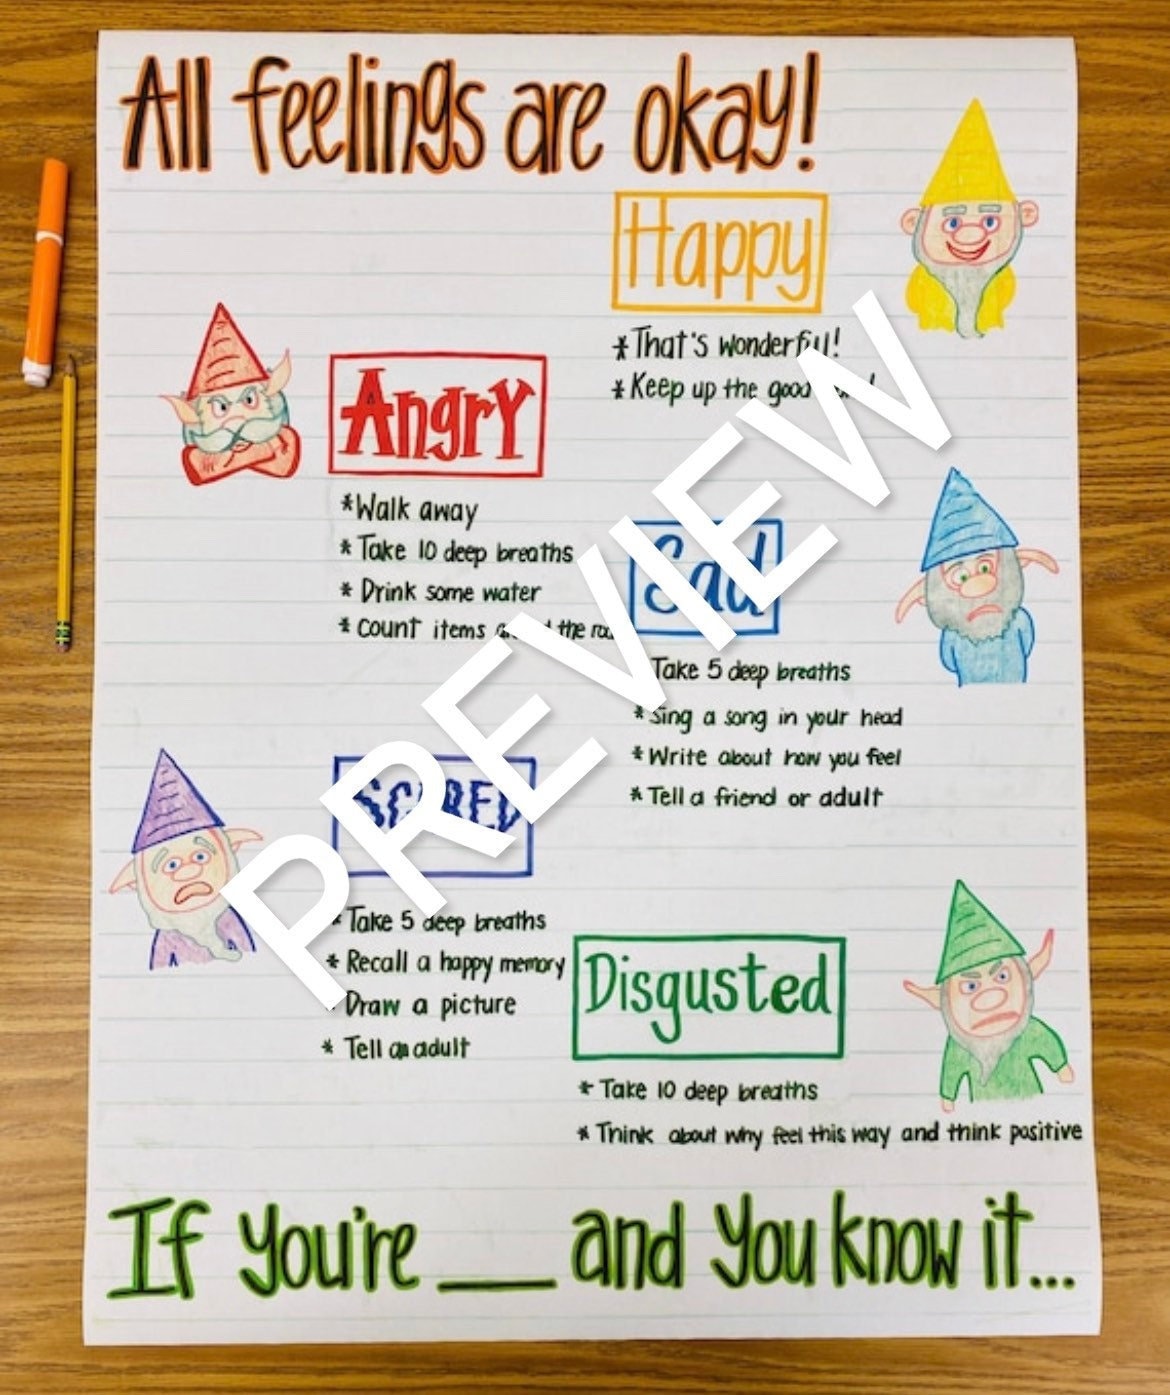 All feelings are okay!
Happy
*That's wonderful!
*Keep up the good
Angry
*Walk away
*Take 10 deep breaths
*Drink some water
*Count items around the
Sad
Take 5 deep breaths
*Sing a song in your head
*Write about how you feel
*Tell a friend or adult
SCARED
*Take 5 deep breaths
*Recall a happy memory
*Draw a picture
*Tell an adult
Disgusted
*Take 10 deep breaths
*Think about why feel this way and think positive
If you're ___ and you know it...
PREVIEW